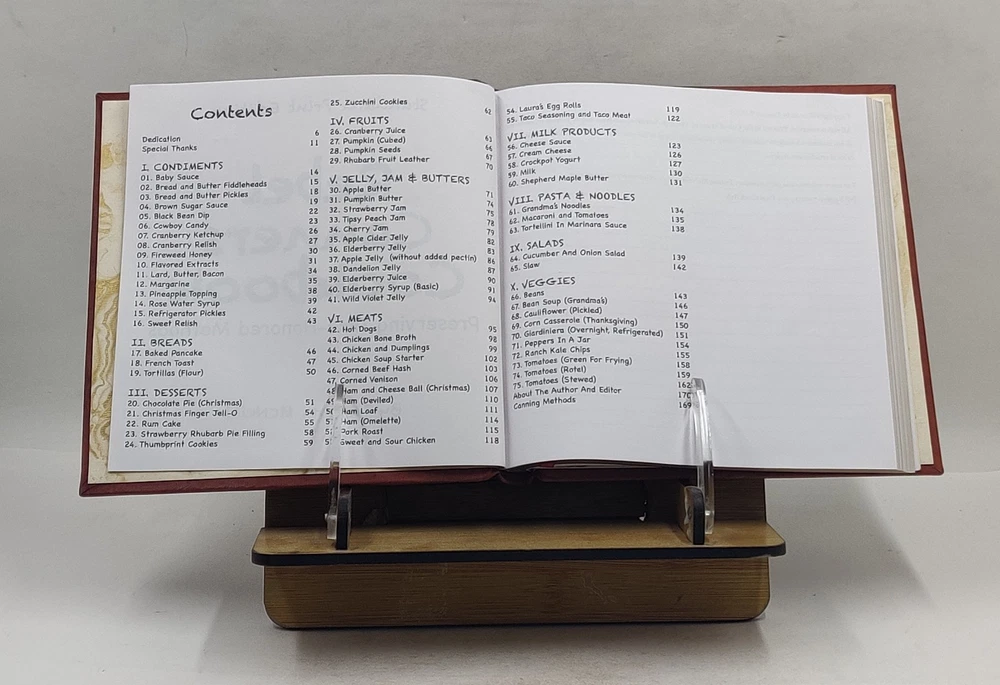 Contents
Dedication 6
Special Thanks 11
I. CONDIMENTS
01. Baby Sauce 14
02. Bread and Butter Fiddleheads 15
03. Bread and Butter Pickles 18
04. Brown Sugar Sauce 19
05. Black Bean Dip 22
06. Cowboy Candy 23
07. Cranberry Ketchup 26
08. Cranberry Relish 27
09. Fireweed Honey 30
10. Flavored Extracts 31
11. Lard, Butter, Bacon 34
12. Margarine 35
13. Pineapple Topping 38
14. Rose Water Syrup 39
15. Refrigerator Pickles 42
16. Sweet Relish 43
II. BREADS
17. Baked Pancake 46
18. French Toast 47
19. Tortillas (Flour) 50
III. DESSERTS
20. Chocolate Pie (Christmas) 51
21. Christmas Finger Jell-O 54
22. Rum Cake 55
23. Strawberry Rhubarb Pie Filling 58
24. Thumbprint Cookies 59
25. Zucchini Cookies 62
IV. FRUITS
26. Cranberry Juice 63
27. Pumpkin (Cubed) 66
28. Pumpkin Seeds 67
29. Rhubarb Fruit Leather 70
V. JELLY, JAM & BUTTERS
30. Apple Butter 71
31. Pumpkin Butter 74
32. Strawberry Jam 75
33. Tipsy Peach Jam 78
34. Cherry Jam 79
35. Apple Cider Jelly 82
36. Elderberry Jelly 83
37. Apple Jelly (without added pectin) 86
38. Dandelion Jelly 87
39. Elderberry Juice 90
40. Elderberry Syrup (Basic) 91
41. Wild Violet Jelly 94
VI. MEATS
42. Hot Dogs 95
43. Chicken Bone Broth 98
44. Chicken and Dumplings 99
45. Chicken Soup Starter 102
46. Corned Beef Hash 103
47. Corned Venison 106
48. Ham and Cheese Ball (Christmas) 107
Ham (Deviled) 110
Ham Loaf 111
Ham (Omelette) 114
Pork Roast 115
Sweet and Sour Chicken 118
54. Laura's Egg Rolls 119
55. Taco Seasoning and Taco Meat 122
VII. MILK PRODUCTS
56. Cheese Sauce 123
57. Cream Cheese 126
58. Crockpot Yogurt 127
59. Milk 130
60. Shepherd Maple Butter 131
VIII. PASTA & NOODLES
61. Grandma's Noodles 134
62. Macaroni and Tomatoes 135
63. Tortellini In Marinara Sauce 138
IX. SALADS
64. Cucumber And Onion Salad 139
65. Slaw 142
X. VEGGIES
66. Beans 143
67. Bean Soup (Grandma's) 146
68. Cauliflower (Pickled) 147
69. Corn Casserole (Thanksgiving) 150
70. Giardiniera (Overnight, Refrigerated) 151
71. Peppers In A Jar 154
72. Ranch Kale Chips 155
73. Tomatoes (Green For Frying) 158
74. Tomatoes (Rotel) 159
75. Tomatoes (Stewed) 162
About The Author And Editor 170
Canning Methods 169